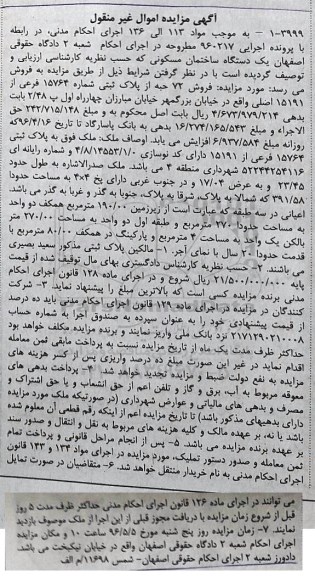 آگهی مزایده اموال غیر منقول
۱-۳۹۹۹ - به موجب مواد ۱۱۳ الی ۱۳۶ اجرای احکام مدنی، در رابطه
با پرونده اجرایی ۹۶۰۲۱۷ مطروحه در اجرای احکام شعبه ۲ دادگاه حقوقی
اصفهان یک دستگاه ساختمان مسکونی که حسب نظریه کارشناسی ارزیابی و
توصیف گردیده است با در نظر گرفتن شرایط ذیل از طریق مزایده به فروش
می رسد: مورد مزایده: فروش ۷۲ حبه از پلاک ثبتی شماره ۱۵۷۶۴ فرعی از
۱۵۱۹۱ اصلی واقع در خیابان بزرگمهر خیابان مبارزان چهارراه اول پ ۲/۴۸ بابت
بدهی مبلغ ۴/۶۷۳/۹۷۹/۲۱۴ ریال بابت اصل محکوم به و مبلغ ۲۴۲/۷۱۵/۱۴۸ حق
الاجراء و مبلغ ۱۶/۲۷۴/۱۶۵/۵۴۳ بدهی به بانک پاسارگاد تا تاریخ ۹۶/۴/۱۶ که
روزانه مبلغ ۶/۹۳۷/۵۸۴ ریال افزایش می یابد. اوصاف ملک: ملک فوق به پلاک ثبتی
۱۵۷۶۴ فرعی از ۱۵۱۹۱ دارای کد نوسازی ۴/۸/۱۳۵۵۳/۱/۰ و شماره رایانه ای
۵۲۲۴۴۲۵۴۱۱۶ شهرداری منطقه ۴ می باشد. ملک صدرالاشاره به طول حدود
۲۳/۴۵ و به عرض ۱۷/۰۴ و در جنوب غربی دارای پخ ۴×۴ به مساحت حدودا
۳۹۱/۵۸ که شمالا به پلاک، شرقا به پلاک، جنوبا به گذر و غربا به گذر می باشد
اعیانی در سه طبقه که عبارت است از زیرزمین ۱۹۰/۰۰ مترمربع همکف دو واحد
به مساحت حدودا ۲۷۰ مترمربع و طبقه اول دو واحد به مساحت ۲۷۰/۰۰ متر
بالکن یک واحد به مساحت ۴ مترمربع و پارکینگ در همکف ۸۰/۰۰ مترمربع با
قدمت حدودا ۲۰ سال با نمای آجر. ۱- مالکین پلاک ثبتی مذکور سعید بصیری
می باشند. ۲- حسب نظریه کارشناس دادگستری بهای مال توقیف شده از قیمت
پایه ۲۱/۵۰۰/۰۰۰/۰۰۰ ریال شروع و در اجرای ماده ۱۲۸ قانون اجرای احکام
مدنی برنده مزایده کسی است که بالاترین مبلغ را پیشنهاد نماید. ۳- شرکت
کنندگان در مزایده در اجرای ماده ۱۲۹ قانون اجرای احکام مدنی باید ده درصد
از قیمت پیشنهادی خود را به عنوان سپرده به صندوق اجرا به شماره حساب
۲۱۷۱۲۹۰۲۱۰۰۰۸ نزد بانک ملی واریز نمایند و برنده مزایده مکلف خواهد بود
حداکثر ظرف مدت یک ماه از تاریخ مزایده نسبت به پرداخت مابقی ثمن معامله
اقدام نماید در غیر این صورت مبلغ ده درصد واریزی پس از کسر هزینه های
مزایده به نفع دولت ضبط و مزایده تجدید خواهد شد. ۴- پرداخت بدهی های
معوقه مربوط به آب، برق و گاز و تلفن اعم از حق انشعاب و یا حق اشتراک و
مصرف و بدهی های مالیاتی و عوارض شهرداری (در صورتیکه ملک مورد مزایده
دارای بدهیهای مذکور باشد) تا تاریخ مزایده اعم از اینکه رقم قطعی آن معلوم شده
باشد یا نه، بر عهده مالک و کلیه هزینه های مربوط به نقل و انتقال و صدور سند
بر عهده برنده مزایده می باشد. ۵- پس از انجام مراحل قانونی و پرداخت تمام
ثمن معامله و صدور دستور تملیک، مورد مزایده در اجرای مواد ۱۳۴ و ۱۴۳ قانون
اجرای احکام مدنی به نام خریدار منتقل خواهد شد. ۶- متقاضیان در صورت تمایل
می توانند در اجرای ماده ۱۲۶ قانون اجرای احکام مدنی حداکثر ظرف مدت ۵ روز
قبل از شروع زمان مزایده با دریافت مجوز قبلی از این اجرا از ملک موصوف بازدید
نمایند. ۷- زمان مزایده روز پنج شنبه مورخ ۹۶/۵/۵ ساعت ۱۰ و مکان مزایده
اجرای احکام شعبه ۲ دادگاه حقوقی اصفهان واقع در خیابان نیکبخت می باشد.
دادورز شعبه ۲ اجرای احکام حقوقی اصفهان - شمس ۱۱۶۹۸/م الف